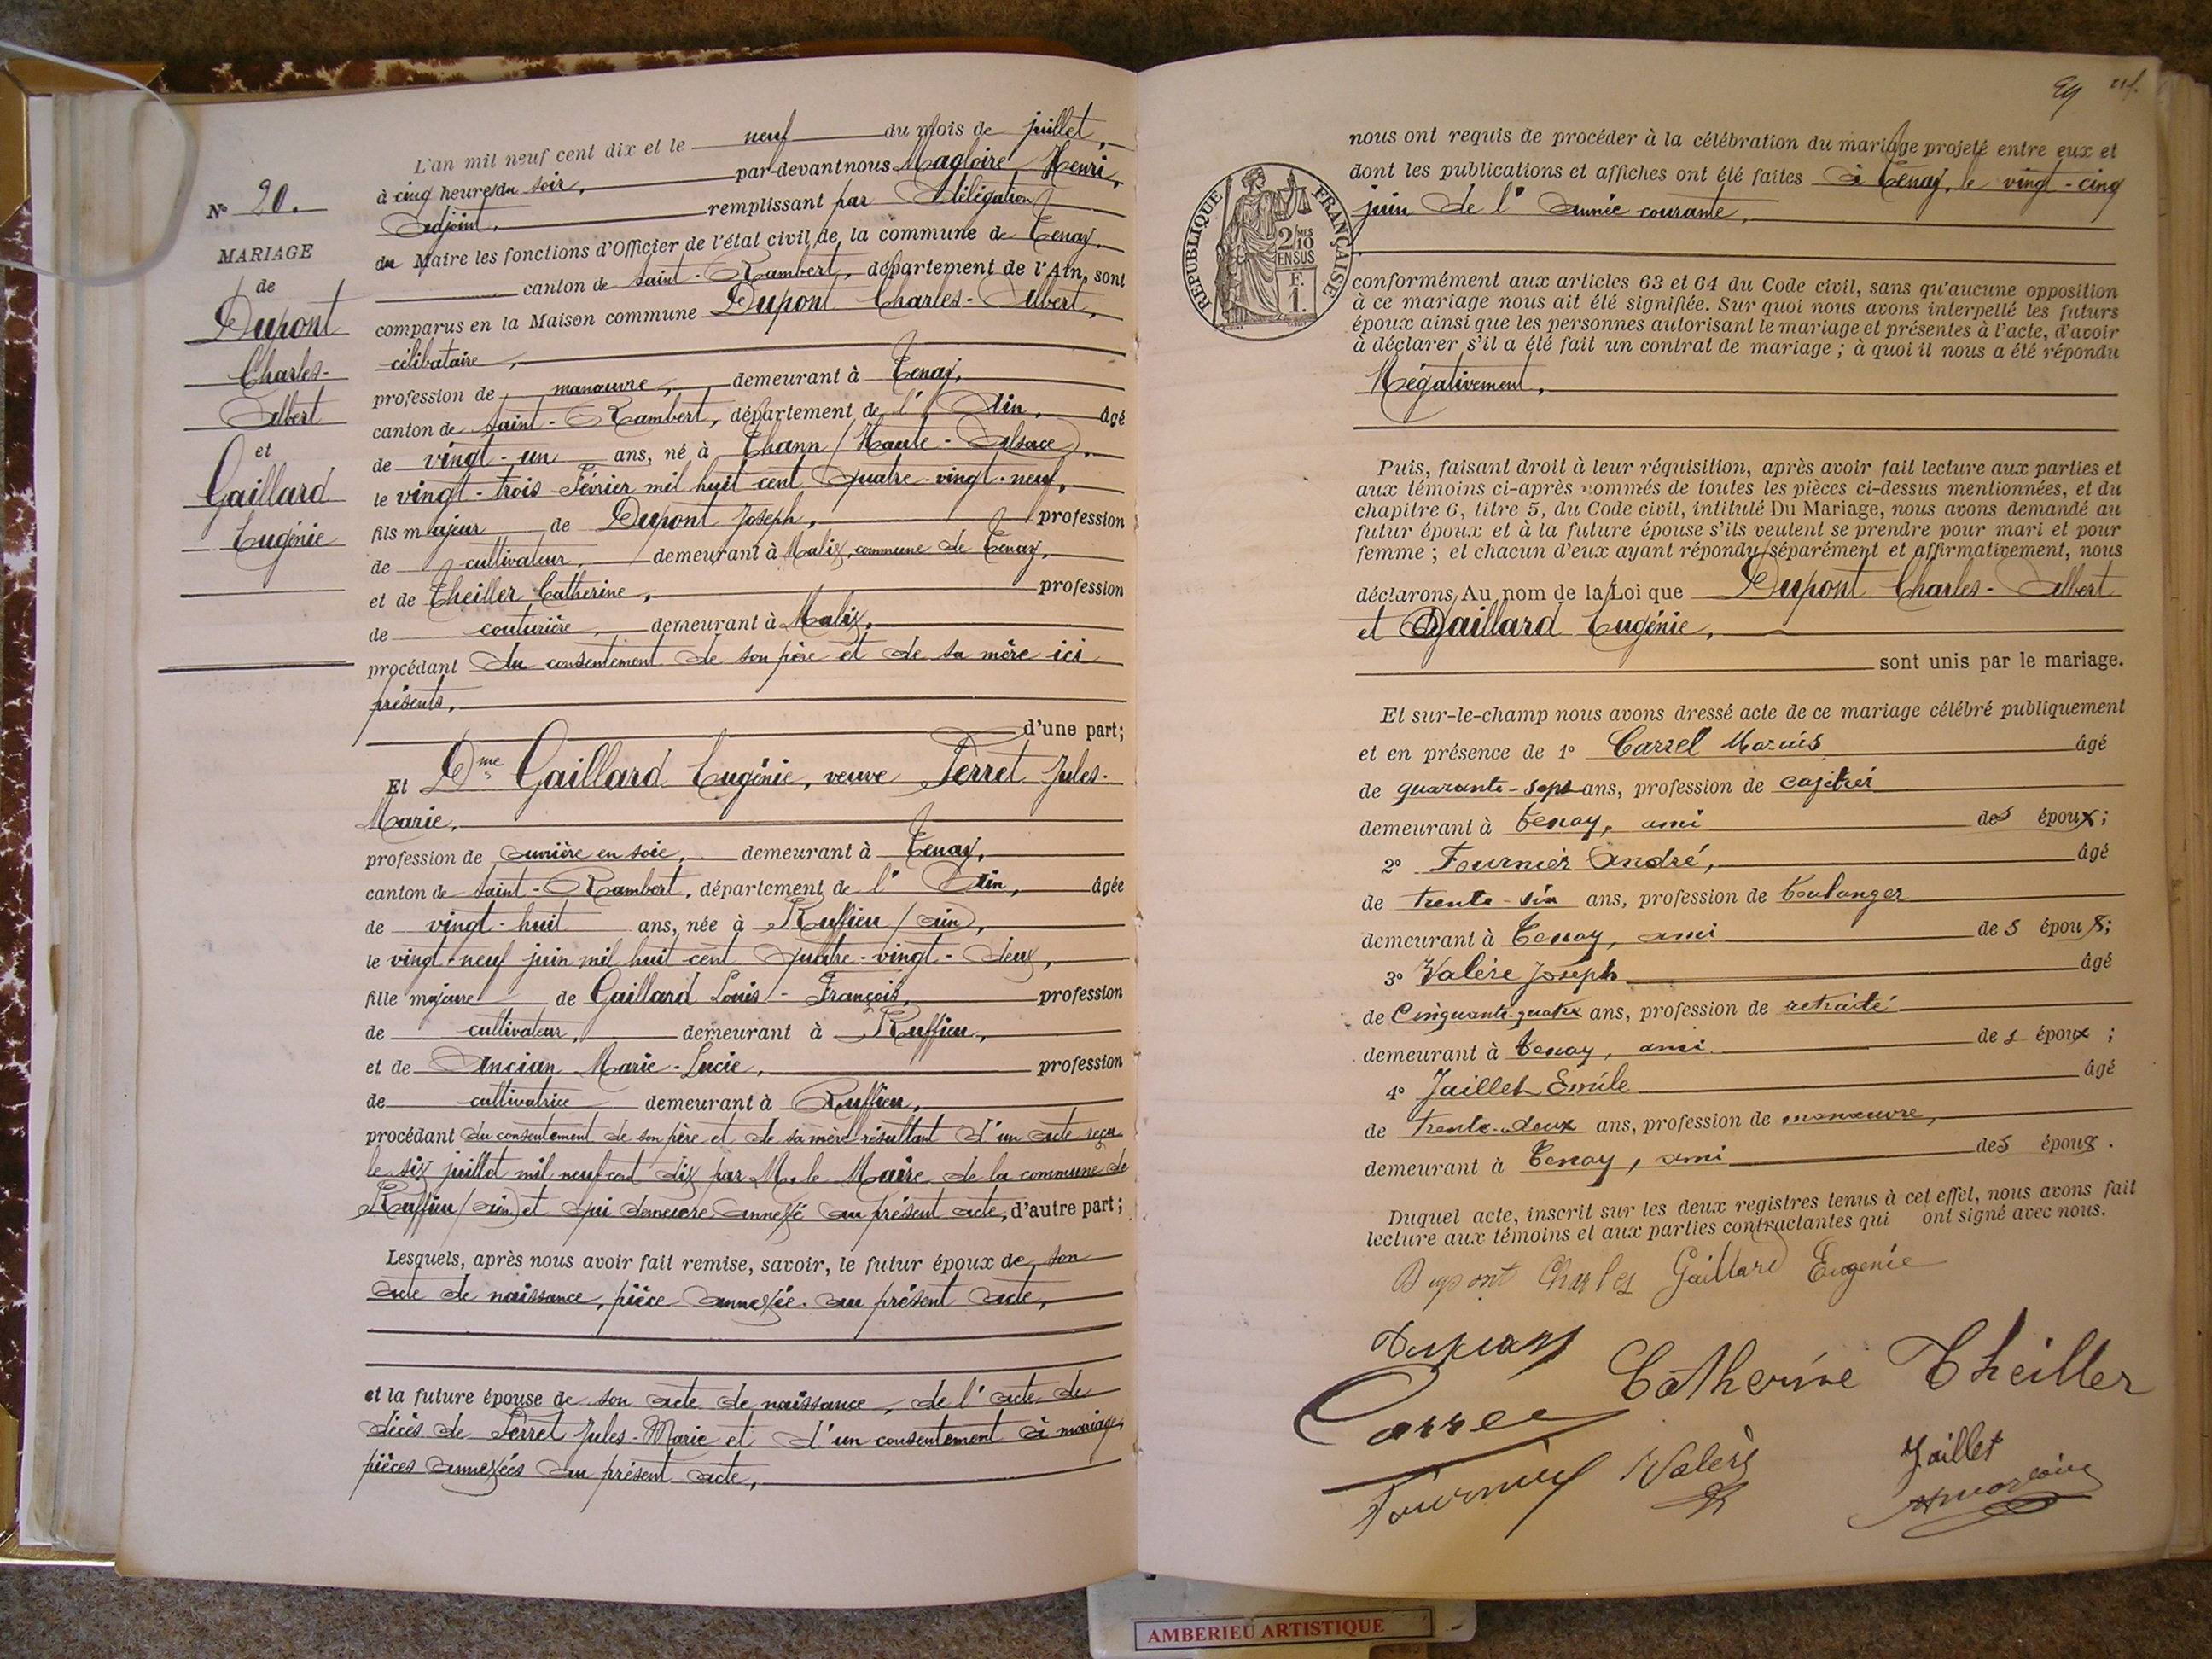 L'an mil neuf cent dix et le neuf du mois de juillet,
à cinq heures du soir, par-devant nous Magloire Henri,
adjoint, remplissant par délégation
du Maire les fonctions d'Officier de l'état civil de la commune de Tenay,
canton de Saint-Rambert, département de l'Ain, sont
comparus en la Maison commune Dupont Charles-Albert,
célibataire,
profession de manœuvre, demeurant à Tenay,
canton de Saint-Rambert, département de l'Ain, âgé
de vingt-un ans, né à Thann (Haute-Alsace),
le vingt-trois Février mil huit cent quatre-vingt-neuf,
fils majeur de Dupont Joseph, profession
de cultivateur, demeurant à Malix, commune de Tenay,
et de Theiller Catherine, profession
de couturière, demeurant à Malix,
procédant du consentement de son père et de sa mère ici
présents,
d'une part;
Et Dme Gaillard Eugénie, veuve Perret Jules-
Marie,
profession de ouvrière en soie, demeurant à Tenay,
canton de Saint-Rambert, département de l'Ain, âgée
de vingt-huit ans, née à Ruffieu (Ain),
le vingt-neuf juin mil huit cent quatre-vingt-deux,
fille majeure de Gaillard Louis-François, profession
de cultivateur, demeurant à Ruffieu,
et de Ancian Marie-Lucie, profession
de cultivatrice demeurant à Ruffieu,
procédant du consentement de son père et de sa mère résultant d'un acte reçu
le six juillet mil neuf cent dix par M. le Maire de la commune de
Ruffieu (Ain) et qui demeure annexé au présent acte, d'autre part;
Lesquels, après nous avoir fait remise, savoir, le futur époux de son
acte de naissance, pièce annexée au présent acte,
et la future épouse de son acte de naissance, de l'acte de
décès de Perret Jules-Marie et d'un consentement à mariage,
pièces annexées au présent acte,
N° 20.
MARIAGE
de
Dupont
Charles-
Albert
et
Gaillard
Eugénie
29
nous ont requis de procéder à la célébration du mariage projeté entre eux et
dont les publications et affiches ont été faites à Tenay, le vingt-cinq
juin de l'année courante,
RÉPUBLIQUE FRANÇAISE
2/10 MES
EN SUS
F.
1.
conformément aux articles 63 et 64 du Code civil, sans qu'aucune opposition
à ce mariage nous ait été signifiée. Sur quoi nous avons interpellé les futurs
époux ainsi que les personnes autorisant le mariage et présentes à l'acte, d'avoir
à déclarer s'il a été fait un contrat de mariage; à quoi il nous a été répondu
Négativement,
Puis, faisant droit à leur réquisition, après avoir fait lecture aux parties et
aux témoins ci-après nommés de toutes les pièces ci-dessus mentionnées, et du
chapitre 6, titre 5, du Code civil, intitulé Du Mariage, nous avons demandé au
futur époux et à la future épouse s'ils veulent se prendre pour mari et pour
femme; et chacun d'eux ayant répondu séparément et affirmativement, nous
déclarons, Au nom de la Loi que Dupont Charles-Albert
et Gaillard Eugénie,
sont unis par le mariage.
Et sur-le-champ nous avons dressé acte de ce mariage célébré publiquement
et en présence de 1° Carrel Marius âgé
de quarante-sept ans, profession de cafetier
demeurant à Tenay, ami des époux;
2° Fournier André, âgé
de trente-six ans, profession de boulanger
demeurant à Tenay, ami des époux;
3° Valère Joseph âgé
de cinquante-quatre ans, profession de retraité
demeurant à Tenay, ami des époux;
4° Jaillet Emile âgé
de trente-deux ans, profession de manœuvre,
demeurant à Tenay, ami des époux.
Duquel acte, inscrit sur les deux registres tenus à cet effet, nous avons fait
lecture aux témoins et aux parties contractantes qui ont signé avec nous.
Dupont Charles Gaillard Eugénie
Dupont
Catherine Theiller
Carrel
Fournier Valère
Jaillet
HMagloire
AMBERIEU ARTISTIQUE